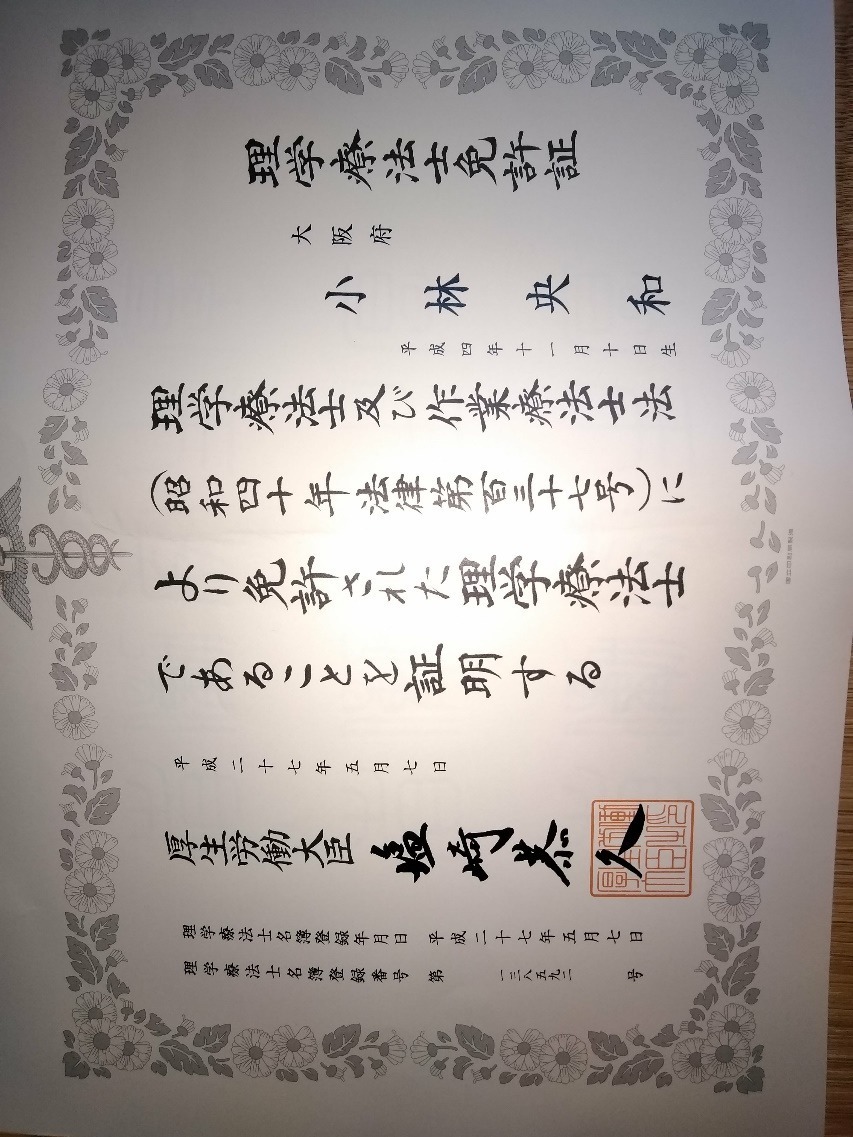 理学療法士免許証
大阪府
小林央和
平成四年十一月十日生
理学療法士及び作業療法士法
(昭和四十年法律第百三十七号)に
より免許された理学療法士
であることを証明する
平成二十七年五月七日
厚生労働大臣 塩崎恭久
理学療法士名簿登録年月日 平成二十七年五月七日
理学療法士名簿登録番号 第 一三八五九二 号